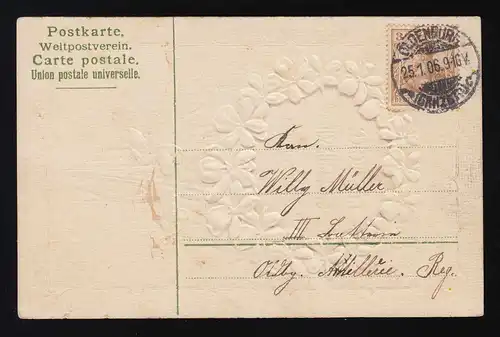 Postkarte.
Weltpostverein.
Carte postale.
Union postale universelle.
OLDENBURG
25.1.06.9-10V.
(GRHZGT.)
3
Kan.
Willy Müller
III Batterie
Oldbg. Artillerie. Reg.